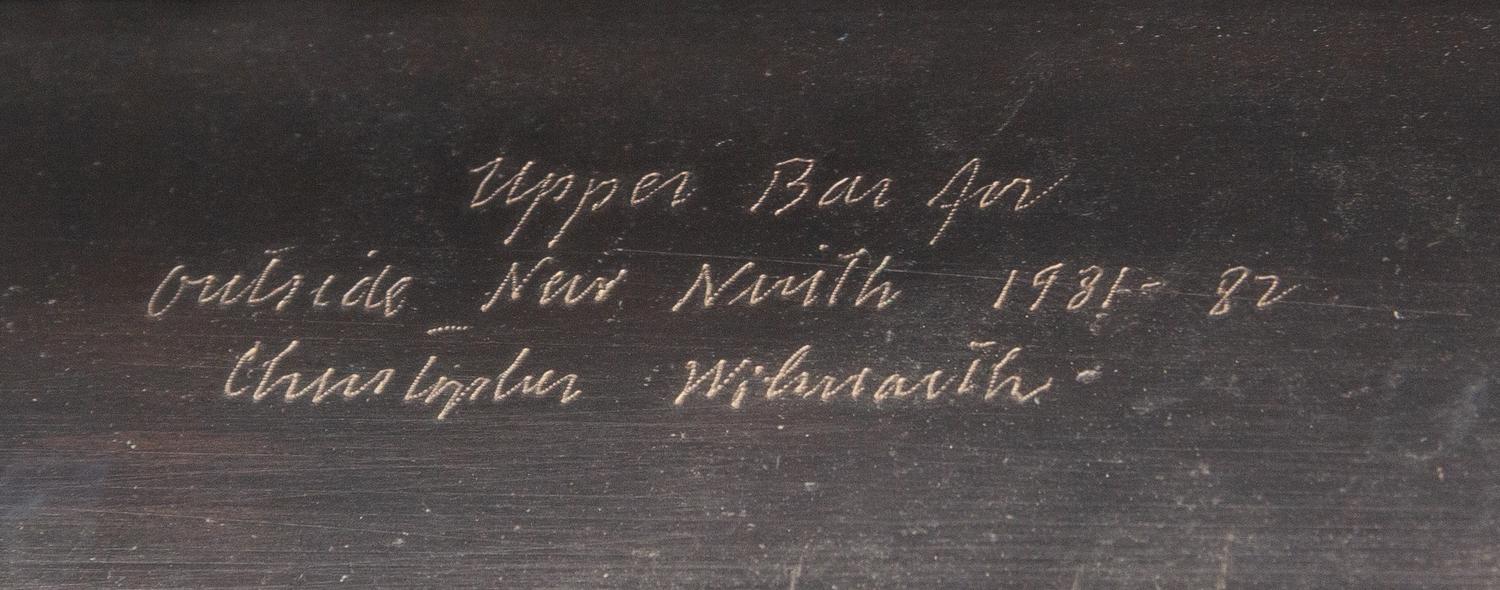 Upper Bar for
outside New North 1981-82
Christopher Wilmarth